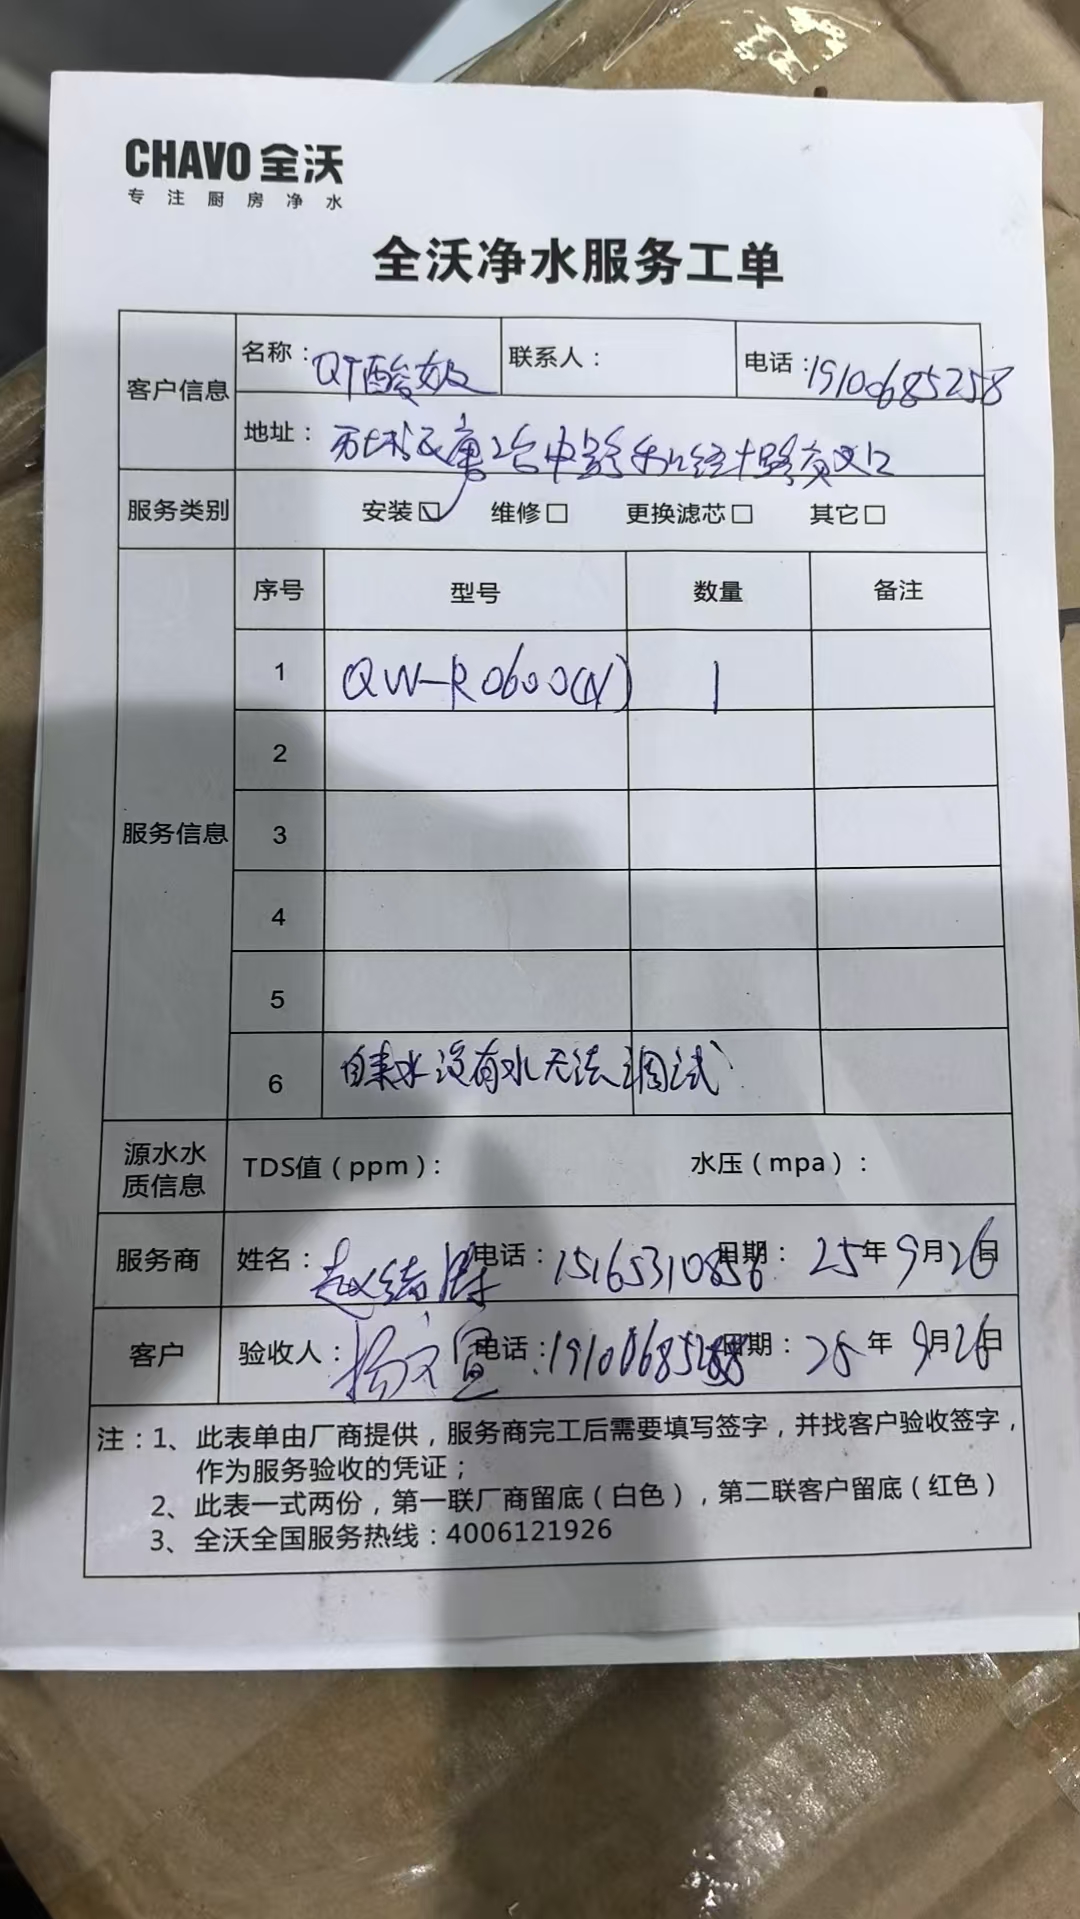 CHAVO 全沃
专注厨房净水
全沃净水服务工单
客户信息
名称：QT酸奶 联系人： 电话：19100685258
地址：历城区唐冶中路和经十路交叉口
服务类别 安装☑ 维修□ 更换滤芯□ 其它□
服务信息
序号 型号 数量 备注
1 QW-R0600(N) 1
2
3
4
5
6 自来水没有水无法调试
源水水质信息 TDS值（ppm）： 水压（mpa）：
服务商 姓名：赵绪 电话：15165310856 日期：25年9月26日
客户 验收人：杨文宣 电话：19100685258 日期：25年9月26日
注：1、此表单由厂商提供，服务商完工后需要填写签字，并找客户验收签字，
作为服务验收的凭证；
2、此表一式两份，第一联厂商留底（白色），第二联客户留底（红色）
3、全沃全国服务热线：4006121926